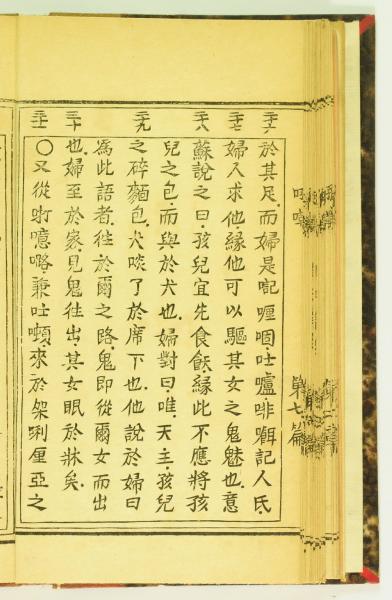 二十六 於其足而婦是𠹌喱㗄吐嚧啡㘔記人氏
二十七 婦人求他緣他可以驅其女之鬼魅也意
二十八 蘇說之曰孩兒宜先食飫緣此不應將孩
兒之包而與於犬也婦對曰唯天主孩兒
二十九 之碎麵包犬啖了於席下也他說於婦曰
為此語者徃於爾之路鬼即從爾女而出
三十 也婦至於家見鬼徃出其女眠於牀矣
三十一 〇又從咑噫咯兼吐㘔來於㗎唎厘亞之
第七篇